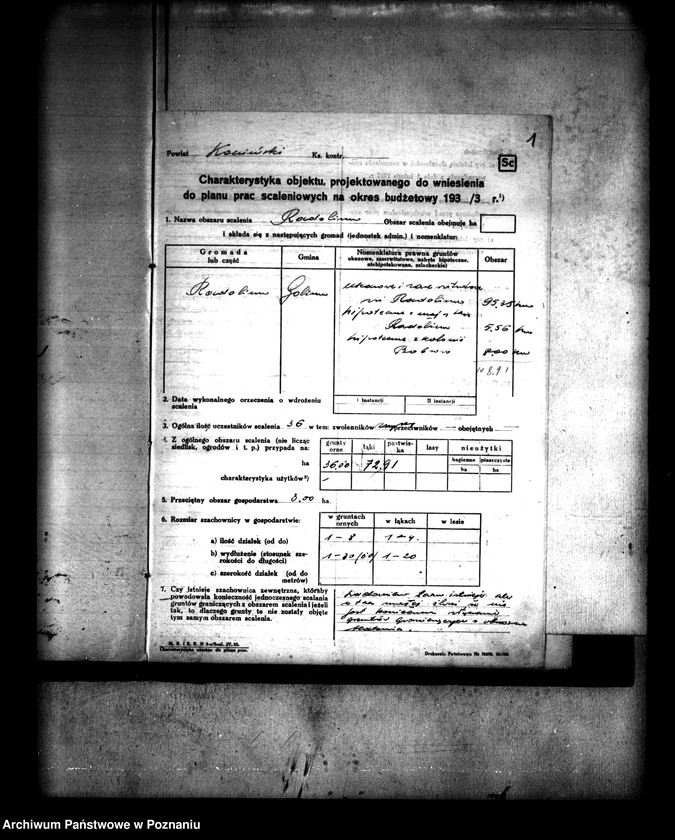 1
Powiat Koniński Ks. kontr.
Sc
Charakterystyka objektu, projektowanego do wniesienia
do planu prac scaleniowych na okres budżetowy 193 /3 r.¹)
1. Nazwa obszaru scalenia Radolina Obszar scalenia obejmuje ha
i składa się z następujących gromad (jednostek admin.) i nomenklatur:
Gromada lub część
Gmina
Nomenklatura prawna gruntów
ukazowe, zaserwitutowe, nabyte hipoteczne,
niehipotekowane, szlacheckie)
Obszar
Radolina Golina
w Radolina 95.25 ha
hipoteczne z maj.
Radolina 5.56 ha
hipoteczne z kolonii
8.91
2. Data wykonalnego orzeczenia o wdrożeniu
scalenia
I instancji II instancji
3. Ogólna ilość uczestników scalenia 36 w tem: zwolenników przeciwników obojętnych
4. Z ogólnego obszaru scalenia (nie licząc
siedlisk, ogrodów i t. p.) przypada na:
grunty orne łąki pastwiska lasy nieużytki
bagienne ha piaszczyste ha
ha 36.00 72.91
charakterystyka użytków²)
5. Przeciętny obszar gospodarstwa 3.00 ha.
6. Rozmiar szachownicy w gospodarstwie:
w gruntach ornych w łąkach w lesie
a) ilość działek (od do) 1-8 1-4
b) wydłużenie (stosunek szerokości do długości) 1-20
c) szerokość działek (od do metrów)
7. Czy istnieje szachownica zewnętrzna, któraby
powodowała konieczność jednoczesnego scalania
gruntów graniczących z obszarem scalenia i jeżeli
tak, to dlaczego grunty te nie zostały objęte
tym samym obszarem scalenia.
gruntów graniczących z obszarem
scalenia.
Charakterystyka objektu do planu prac.
Drukarnia Państwowa Nr
Archiwum Państwowe w Poznaniu